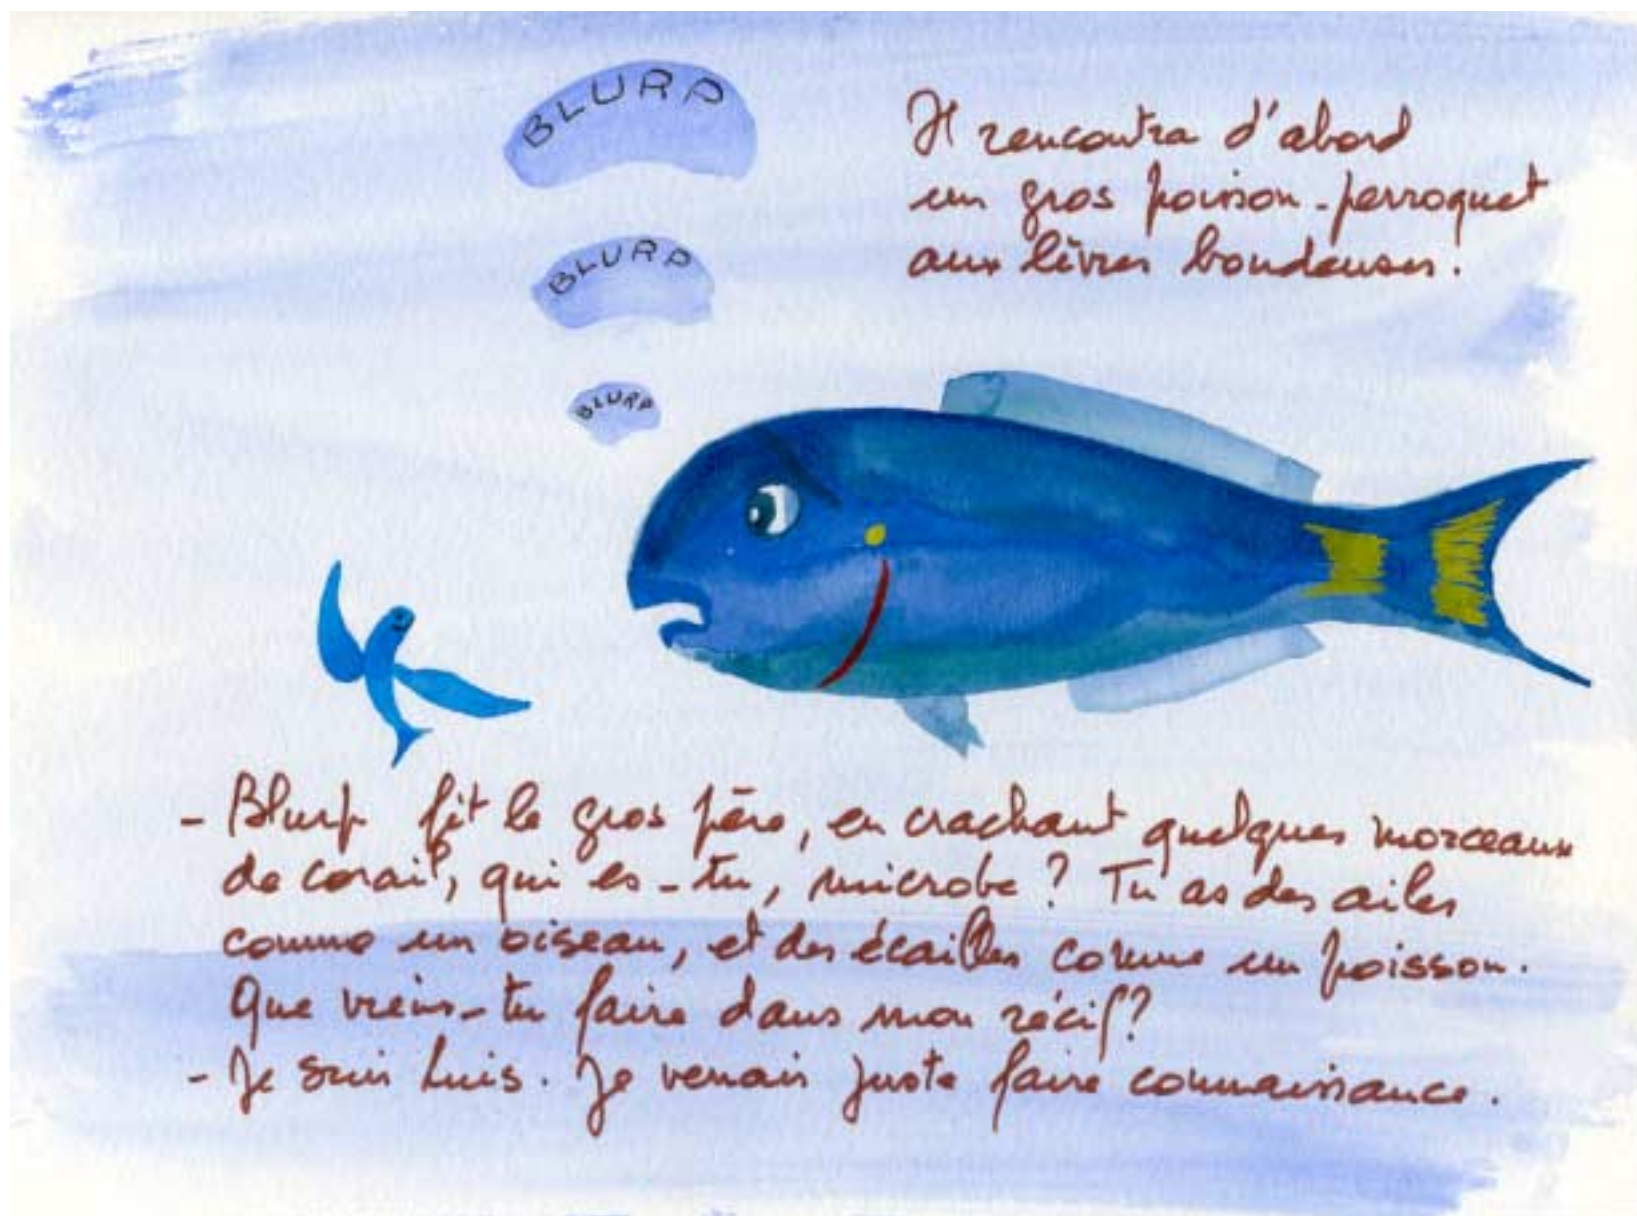 BLURP
BLURP
BLURP
Il rencontra d'abord
un gros poisson-perroquet
aux lèvres boudeuses.
- Blurp fit le gros père, en crachant quelques morceaux
de corail, qui es-tu, microbe ? Tu as des ailes
comme un oiseau, et des écailles comme un poisson.
Que viens-tu faire dans mon récif ?
- Je suis Luis. Je venais juste faire connaissance.